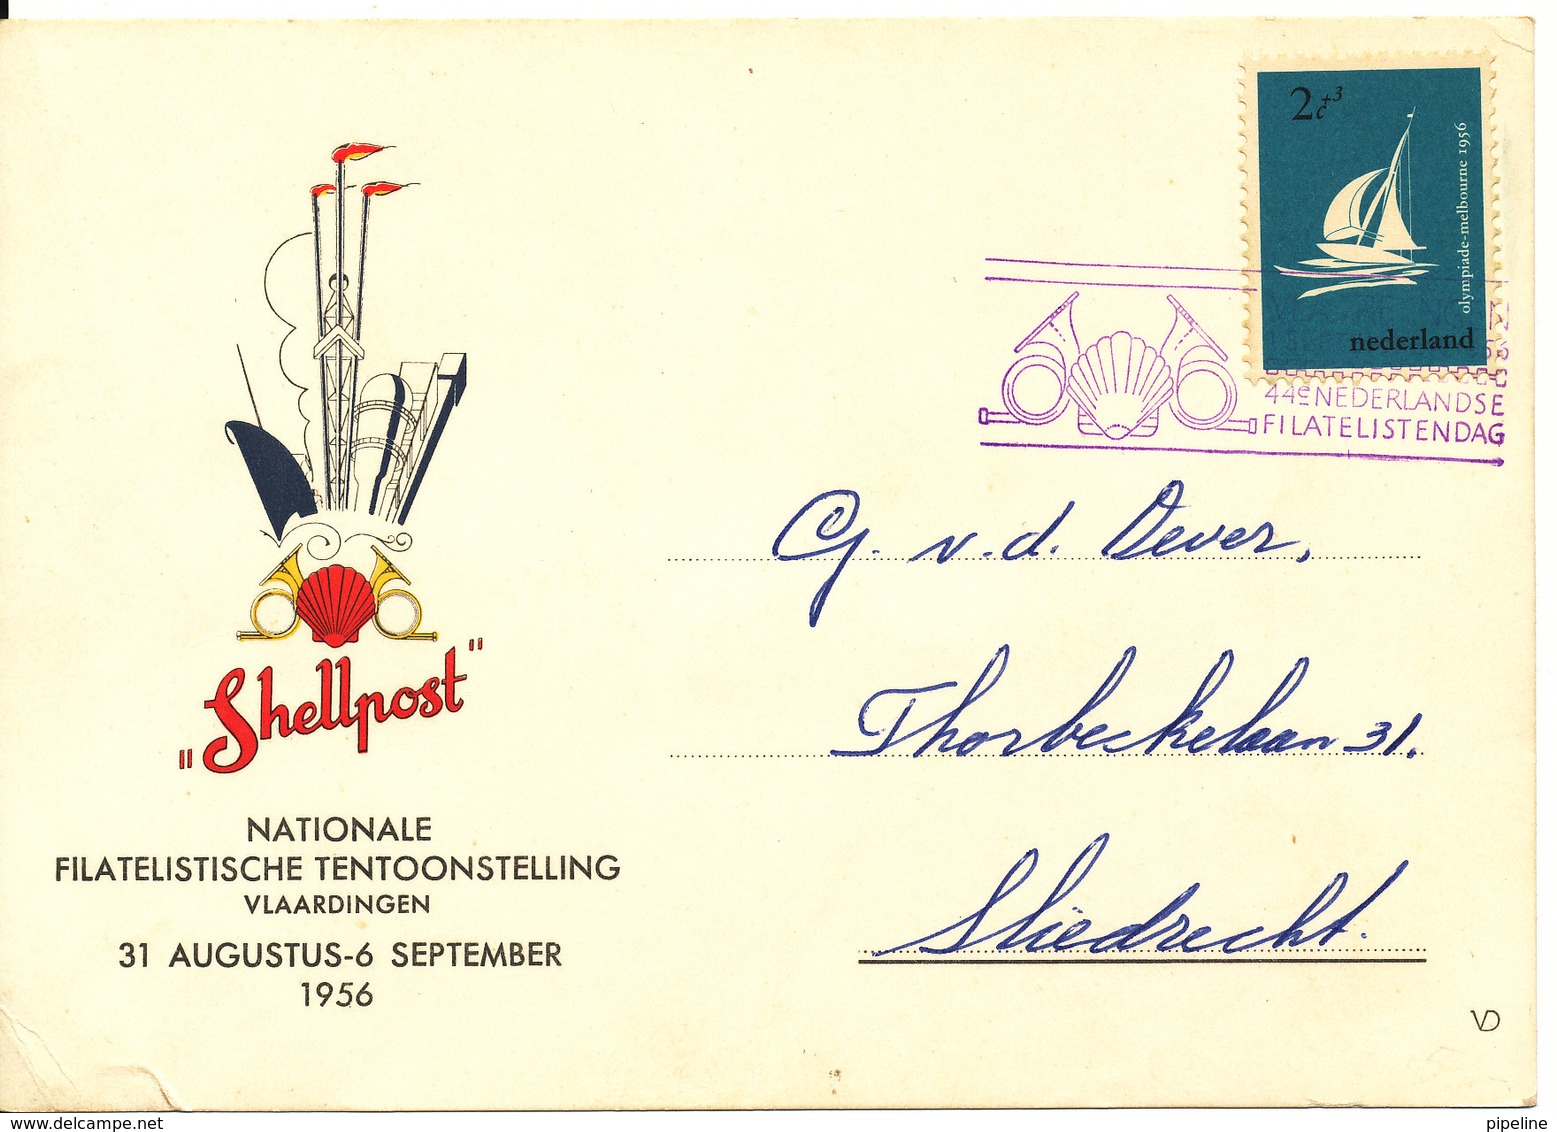 2c+3
olympiade-melbourne 1956
nederland
44e NEDERLANDSE
FILATELISTENDAG
G. v.d. Dever,
Thorbeckelaan 31.
Sliedrecht.
„Shellpost"
NATIONALE
FILATELISTISCHE TENTOONSTELLING
VLAARDINGEN
31 AUGUSTUS-6 SEPTEMBER
1956
VD
www.delcampe.net
pipeline